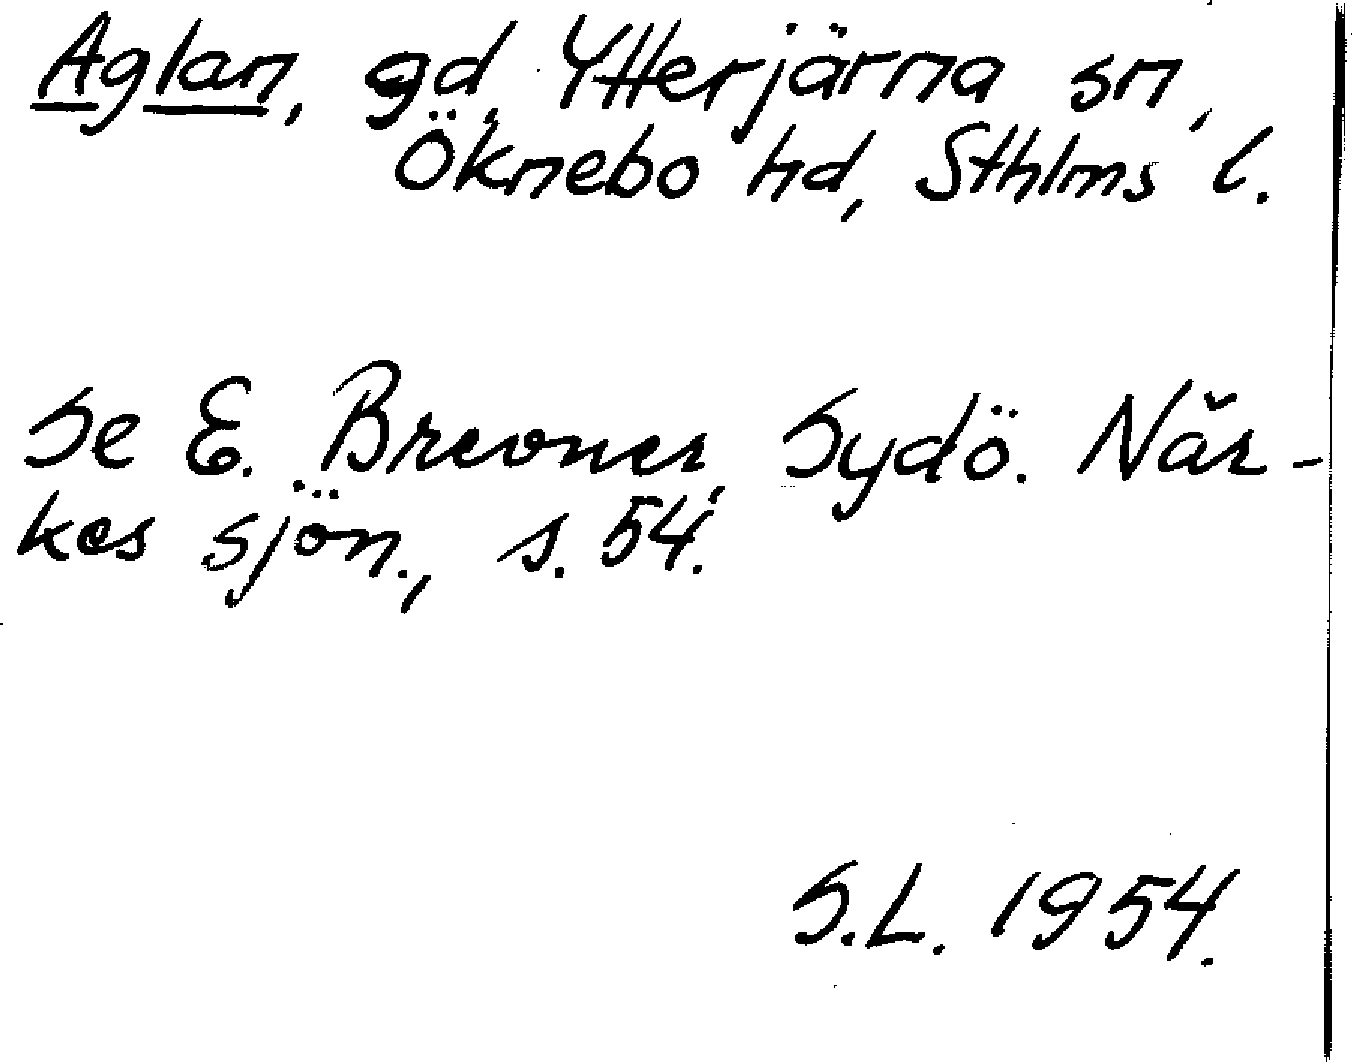 Aglan, gd, Ytterjärna sn,
Öknebo hd, Sthlms l.
Se E. Brevner, Sydö. När-
kes sjön., s. 54.
S.L. 1954.